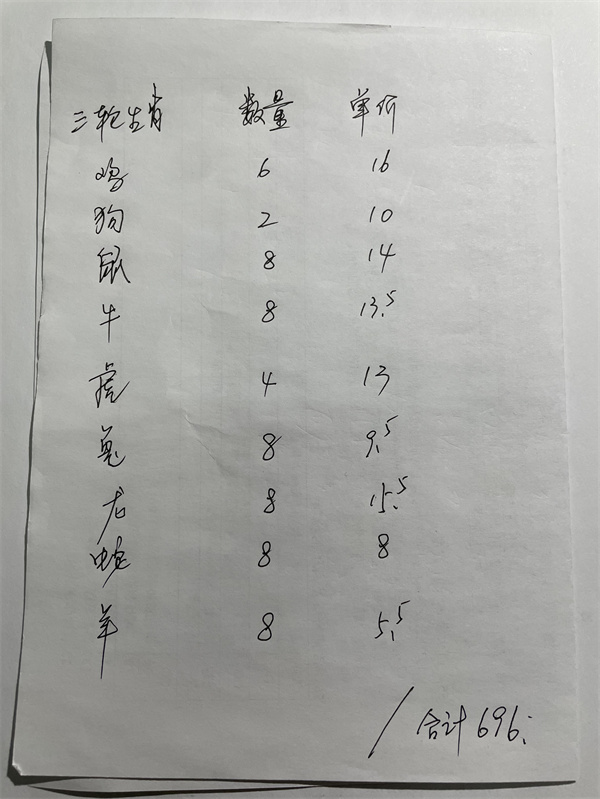 三轮生肖 数量 单价
鸡 6 16
狗 2 10
鼠 8 14
牛 8 13.5
虎 4 13
兔 8 9.5
龙 8 15.5
蛇 8 8
羊 8 5.5
/合计696.